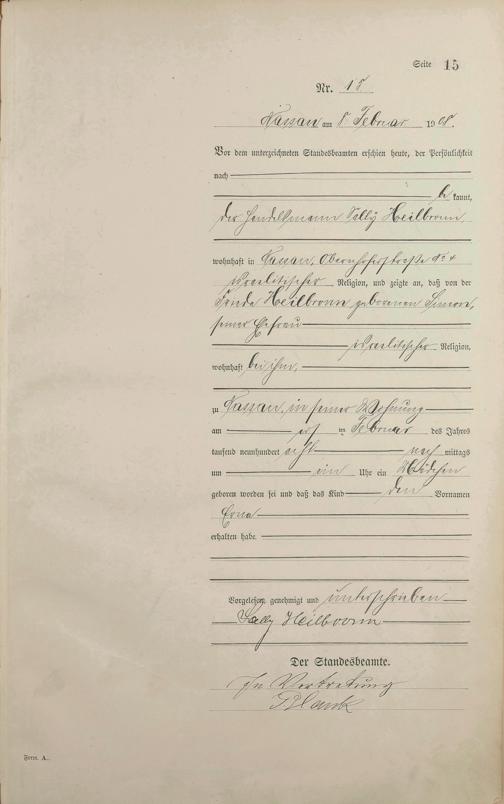 Seite 15
Nr. 15
Nassau am 8. Februar 1908.
Vor dem unterzeichneten Standesbeamten erschien heute, der Persönlichkeit
nach
be kannt,
der Handelsmann Sally Heilbronn,
wohnhaft in Nassau, Obernhoferstraße No 4
israelitischer Religion, und zeigte an, daß von der
Heilbronn geborenen Simon,
seiner Ehefrau
israelitischer Religion,
wohnhaft bei ihm,
zu Nassau, in seiner Wohnung
am im Februar des Jahres
tausend neunhundert acht nach mittags
um ein Uhr ein Mädchen
geboren worden sei und daß das Kind den Vornamen
Erna
erhalten habe.
Vorgelesen, genehmigt und unterschrieben
Sally Heilbronn
Der Standesbeamte.
In Vertretung
Form. A.